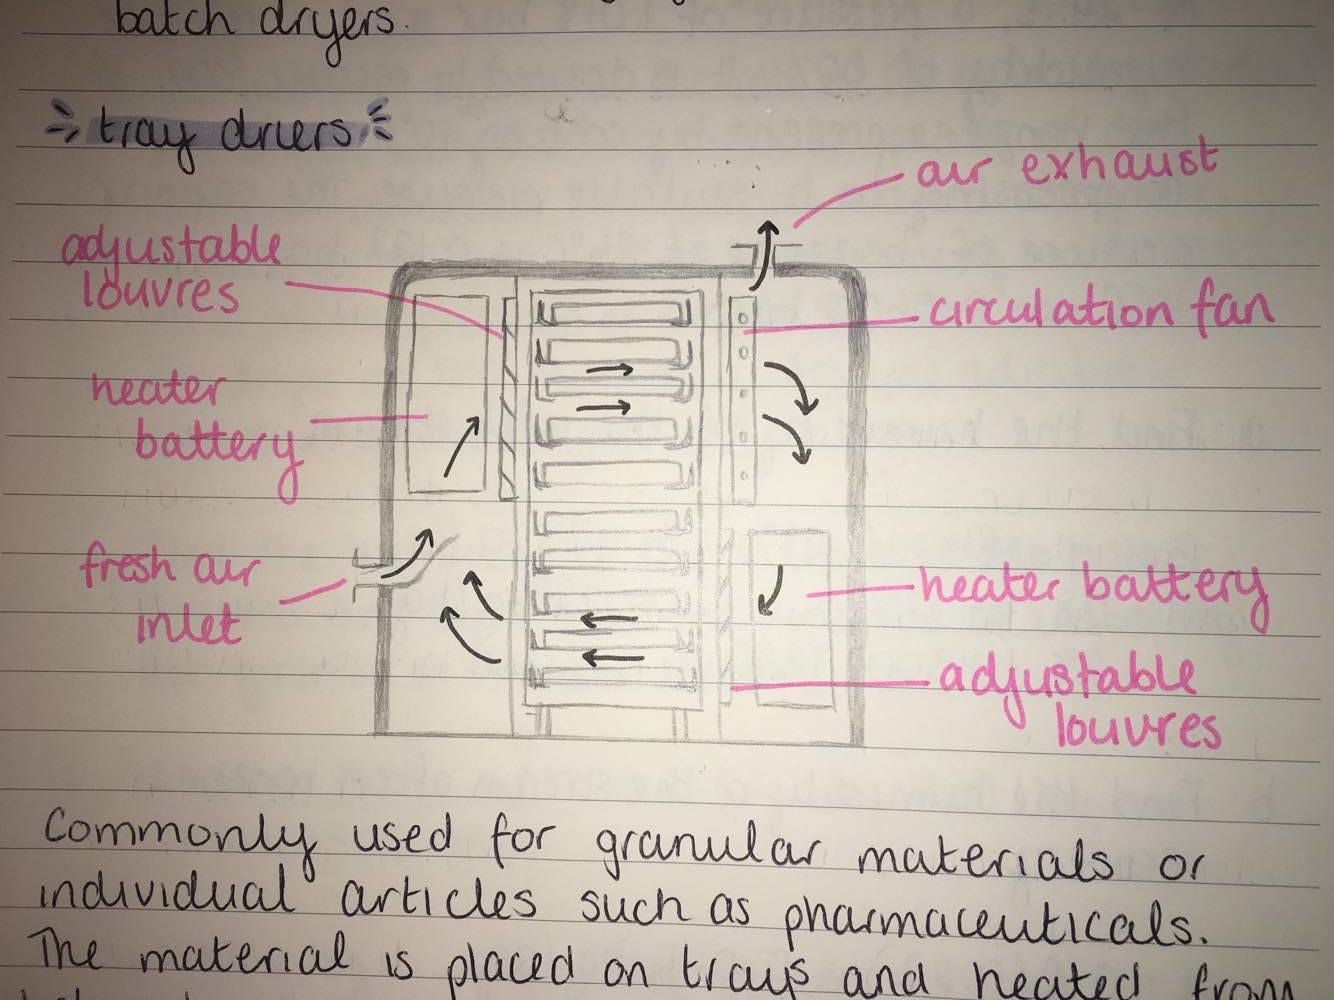 batch dryers.
tray driers
air exhaust
adjustable
louvres
circulation fan
heater
battery
fresh air
inlet
heater battery
adjustable
louvres
Commonly used for granular materials or
individual articles such as pharmaceuticals.
The material is placed on trays and heated from